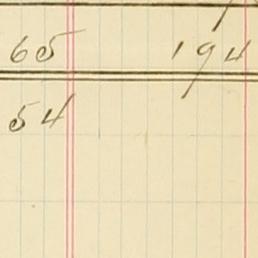 65 194
54